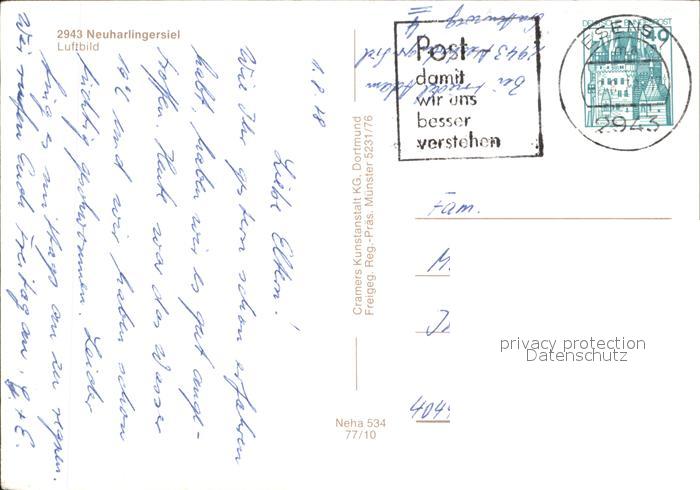 2943 Neuharlingersiel
Luftbild
1.8.78
Liebe Eltern!
Wie Ihr gestern schon erfahren
habt haben wir es gut ange-
troffen. Heute war das Wasser
und wir haben schon
tüchtig geschwommen. Leider
fing es mittags an zu regnen.
Wir rufen Euch Freitag an.
Cramers Kunstanstalt KG, Dortmund
Freigeg. Reg.-Präs. Münster 5231/76
Neha 534
77/10
Bei
2943
Post
damit
wir uns
besser
verstehen
DEUTSCHE BUNDESPOST
40
ESENS
2943
Fam.
M.
404
privacy protection
Datenschutz